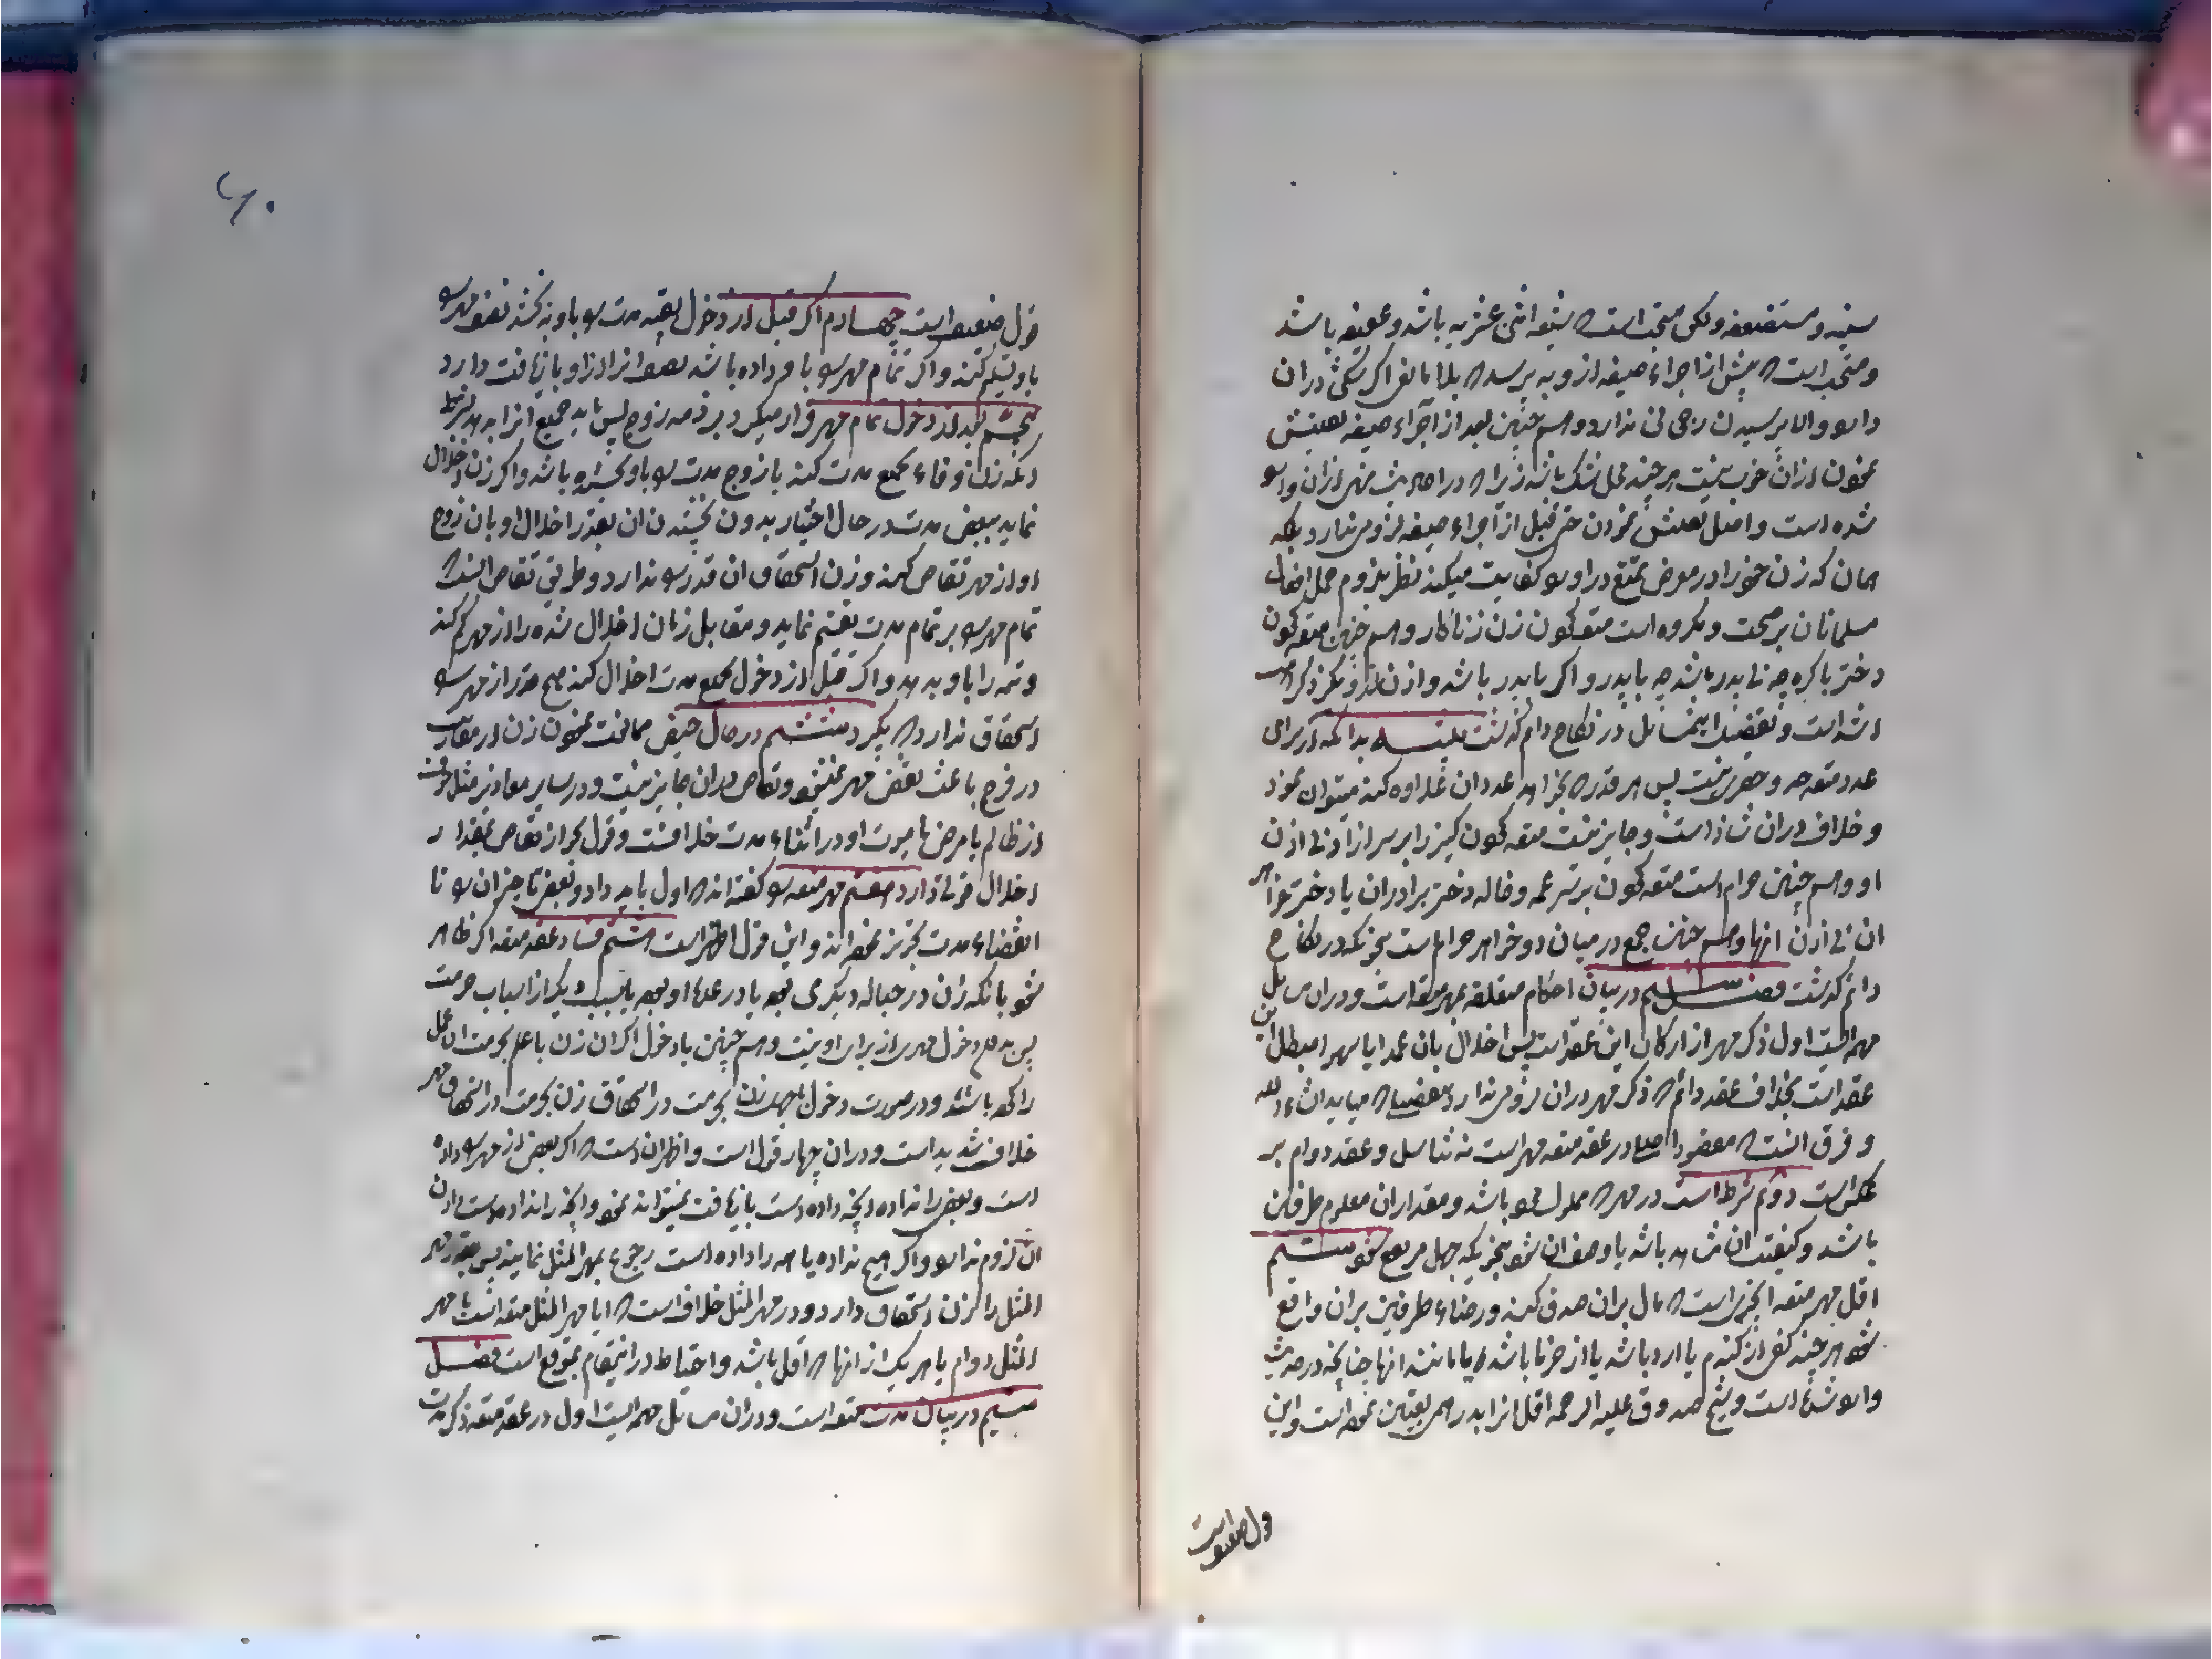 سنیه و مستضعفه ولکن مستحب است که شیعه اثنی عشریه باشد و عفیفه باشد
و مستحب است که پیش از اجراء صیغه از وبه پرسد که بلا مانعی اگر شکی دران
دارد والا پرسیدن رجحانی ندارد و همچنین بعد از اجراء صیغه تفتیش
نمودن ازان خوب نیست هر چند محل شک باشد زیرا که در احادیث نهی ازان وارد
شده است و اصل تفتیش نمودن حتی قبل از اجراء صیغه لزومی ندارد بلکه
همان که زن خود را در معرض تمتع دراورد کفایت میکند نظر بلزوم حمل افعال
مسلمانان بر صحت و مکروه است متعه کردن زن زناکار و همچنین متعه کردن
دختر باکره چه بی پدر باشد چه با پدر و اگر با پدر باشد و اذن
شده است و تفصیل این مسایل در نکاح دائم گذشت تنبیه بدانکه از برای
عدد متعه حد و حصری نیست پس هر قدر که بخواهد عددان علاوه کند میتوان نمود
و خلاف دران شاذ است و جایز نیست متعه کردن کنیز را بر سر ازاد بی اذن
او و همچنین حرام است متعه کردن بر سر عمه و خاله دختر برادران یا دختر خواهر
ان بی اذن انها و همچنین جمع در میان دو خواهر حرام است بنحویکه در نکاح
دائم گذشت فصل در بیان احکام متعلقه بمهر متعه است و دران مسایل
مهمه ایست اول ذکر مهر از ارکان این عقد است پس اخلال بان عمدا یا سهوا مبطل این
عقد است بخلاف عقد دائم که ذکر مهر دران لزومی ندارد بتفصیلی که میاید ان شاء الله
و فرق انست که مقصود اصلی در عقد متعه مهر است نه تناسل و عقد دوام بر
عکس است دویم شرط است در مهر که مملوک باشد و مقداران معلوم طرفین
باشد و کیفیت ان مشاهد باشد یا وصف ان شود بنحویکه جهل مرتفع شود سیم
اقل مهر متعه انچیزی است که مال بران صدق کند و رضاء طرفین بران واقع
شود هر چند کفی از گندم یا ارد باشد یا از خرما باشد یا مانند انها چنانچه در حدیث
وارد شده است و شیخ صدوق علیه الرحمه اقل انرا بدرهمی تعیین نموده است و این
قول ضعیف است
۶۰
قول ضعیف است چهارم اگر قبل از دخول بقیه مدت را باو ببخشد نصف مهر را
باو تسلیم کند و اگر تمام مهر را باو داده باشد نصف انرا ازاو بازیافت دارد
پنجم بعد از دخول تمام مهر قرار میگیرد بر ذمه زوج پس باید جمیع انرا بدهد بشرط
انکه زن وفاء بجمیع مدت کند یا زوج مدت را باو بخشیده باشد و اگر زن اخلال
نماید ببعض مدت در حال اختیار بدون بخشیدن ان بقدر اخلال او بان زوج
او از مهر تقاص کند و زن استحقاق ان قدر را ندارد و طریق تقاص انست که
تمام مهر را بر تمام مدت تقسیم نماید و مقابل زمان اخلال شده را از مهر کم کند
و تتمه را باو بدهد و اگر قبل از دخول بجمیع مدت اخلال کند هیچ قدر از مهر را
استحقاق ندارد که بگیرد ششم در حال حیض ممانعت نمودن زن از مقاربت
در فرج باعث نقص مهر نمیشود و تقاص دران جایز نیست و در سایر معاذیر مثل خوف
از ظالم یا مرض یا موت او در اثناء مدت خلافست و قول بجواز تقاص بمقدار
اخلال قوتی دارد هفتم مهر متعه را گفته اند که اول باید داد و بعضی تاخیران را تا
انقضاء مدت تجویز نموده اند و این قول اظهر است هشتم فساد عقد متعه اگر ظاهر
شود بانکه زن در حباله دیگری بوده یا در عده او بوده یا بسبب دیگر از اسباب حرمت
پس بدون دخول مهری از برای او نیست و همچنین با دخول اگر ان زن با علم بحرمت ان عمل
را کرده باشد و در صورت دخول با جهل زن بحرمت در استحقاق زن بحرمت در استحقاق مهر
خلاف شدید است و دران چهار قول است و اظهران انست که اگر بعضی از مهر را داده
است و بعضی را نداده انچه داده است بازیافت نمیتواند نمود و انچه را نداده است دادن
ان لزوم ندارد و اگر هیچ نداده یا همه را داده است رجوع بمهر المثل نمایند پس بقدر مهر
المثل را زن استحقاق دارد و در مهر المثل خلاف است که ایا مهر المثل متعه است یا مهر
المثل دوام یا هر یک از انها که اقل باشد و احتیاط در اینمقام بموقع است فصل
سیم در بیان مدت متعه است و دران مسایل مهمه ایست اول در عقد متعه ذکر مدت